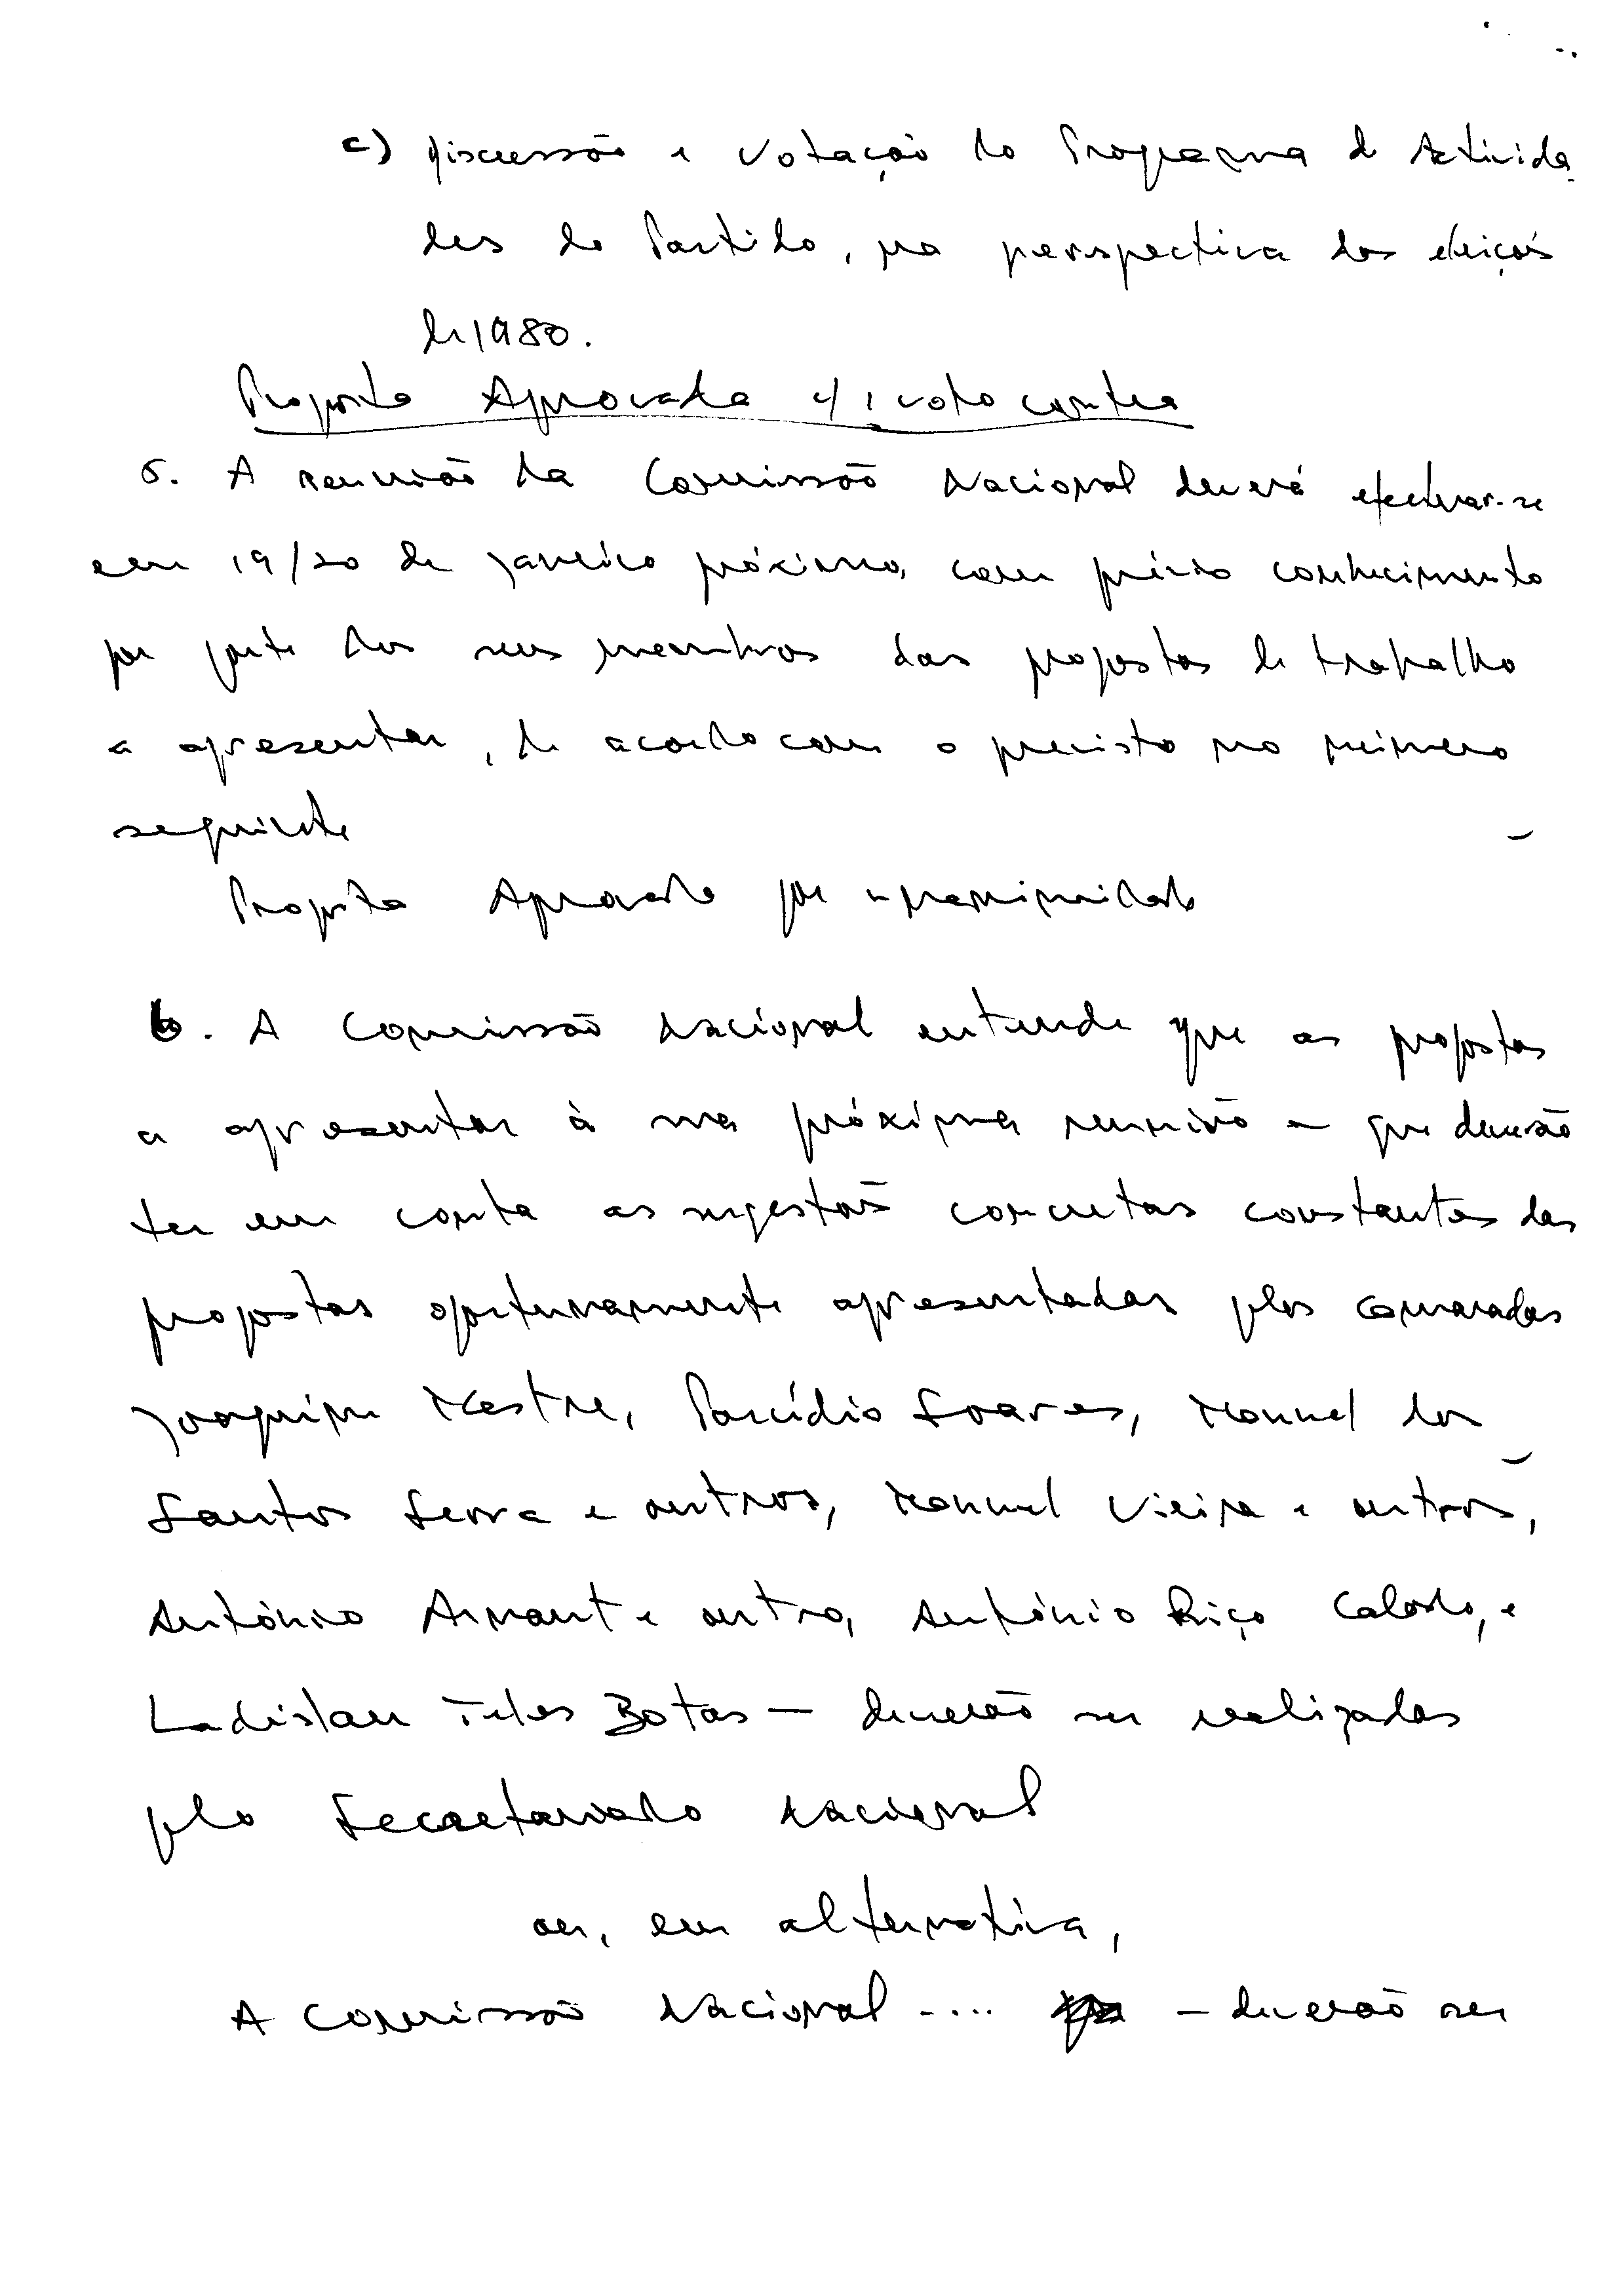 c) Discussão e votação do Programa de Activida
des do Partido, na perspectiva das eleições
de 1980.
Proposta Aprovada c/ 1 voto contra
5. A reunião da Comissão Nacional deverá efectuar-se
em 19/20 de Janeiro próximo, com prévio conhecimento
por parte dos seus membros das propostas de trabalho
a apresentar, de acordo com o previsto no número
seguinte
Proposta Aprovada por unanimidade
6. A Comissão Nacional entende que as propostas
a apresentar à sua próxima reunião – que deverão
ter em conta as sugestões concretas constantes das
propostas oportunamente apresentadas pelos camaradas
Joaquim Mestre, Parcídio Soares, Manuel dos
Santos Serra e outros, Manuel Vieira e outros,
António Arnaut e outro, António Riço Calado, e
Ladislau Teles Botas – deverão ser realizadas
pelo Secretariado Nacional
ou, em alternativa,
A Comissão Nacional .... – deverão ser